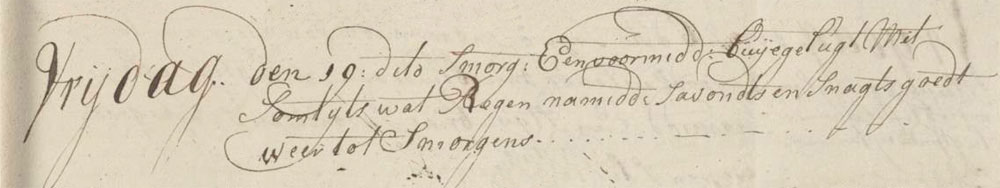 Vrijdag. den 19: dito Smorg: En voormidd: buijege lugt Met
Somtyts wat Regen namidd: Savondts en Snagts goedt
weer tot Smorgens